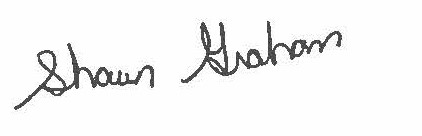 Shawn Graham